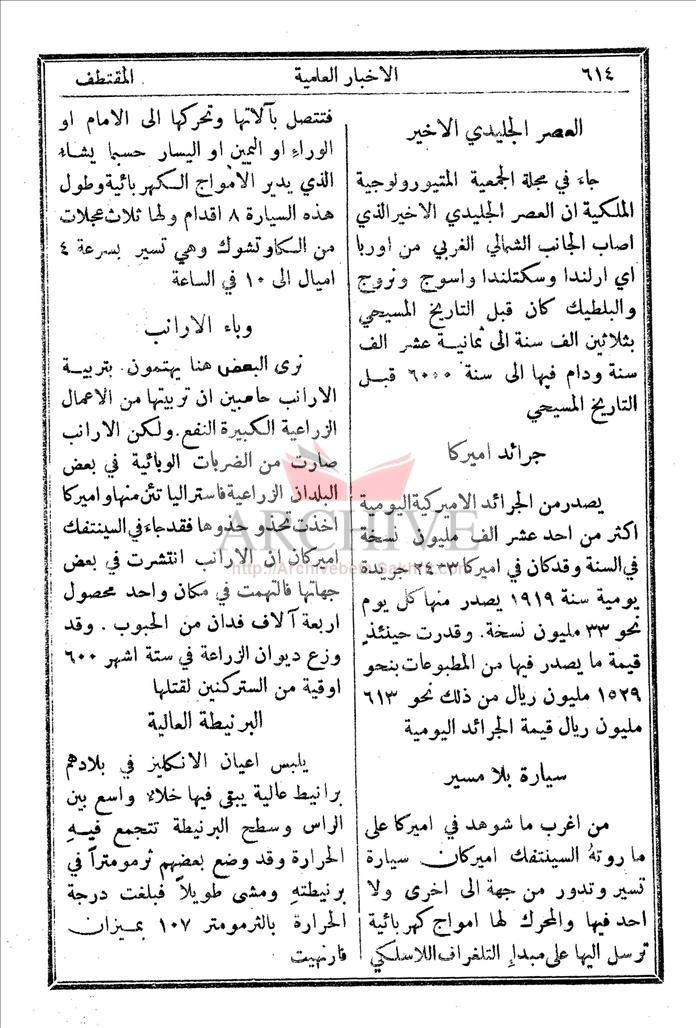 ٦١٤
الاخبار العلمية
المقتطف
العصر الجليدي الاخير
جاءَ في مجلة الجمعية المتيورولوجية
الملكية ان العصر الجليدي الاخير الذي
اصاب الجانب الشمالي الغربي من اوربا
اي ارلندا وسكتلندا واسوج ونروج
والبلطيك كان قبل التاريخ المسيحي
بثلاثين الف سنة الى ثمانية عشر الف
سنة ودام فيها الى سنة ٦٠٠٠ قبل
التاريخ المسيحي
جرائد اميركا
يصدر من الجرائد الاميركية اليومية
اكثر من احد عشر الف مليون نسخة
في السنة وقد كان في اميركا جريدة
يومية سنة ١٩١٩ يصدر منها كل يوم
نحو ٣٣ مليون نسخة. وقدرت حينئذٍ
قيمة ما يصدر فيها من المطبوعات بنحو
١٥٢٩ مليون ريال من ذلك نحو ٦١٣
مليون ريال قيمة الجرائد اليومية
سيارة بلا مسير
من اغرب ما شوهد في اميركا على
ما روتهُ السينتفك اميركان سيارة
تسير وتدور من جهة الى اخرى ولا
احد فيها والمحرك لها امواج كهربائية
ترسل اليها على مبدإِ التلغراف اللاسلكي
فتتصل بآلاتها وتحركها الى الامام او
الوراءِ او اليمين او اليسار حسبما يشاء
الذي يدير الامواج الكهربائية وطول
هذه السيارة ٨ اقدام ولها ثلاث عجلات
من الكاوتشوك وهي تسير بسرعة ٤
اميال الى ١٠ في الساعة
وباء الارانب
نرى البعض هنا يهتمون بتربية
الارانب حاسبين ان تربيتها من الاعمال
الزراعية الكبيرة النفع. ولكن الارانب
صارت من الضربات الوبائية في بعض
البلدان الزراعية فاستراليا تئن منها واميركا
اخذت تحذو حذوها فقد جاء في السينتفك
اميركان ان الارانب انتشرت في بعض
جهاتها فالتهمت في مكان واحد محصول
اربعة آلاف فدان من الحبوب . وقد
وزع ديوان الزراعة في ستة اشهر ٦٠٠
اوقية من الستركنين لقتلها
البرنيطة العالية
يلبس اعيان الانكليز في بلادهم
برانيط عالية يبقى فيها خلاء واسع بين
الراس وسطح البرنيطة تتجمع فيهِ
الحرارة وقد وضع بعضهم ثرمومتراً في
برنيطتهِ ومشى طويلاً فبلغت درجة
الحرارة بالثرمومتر ١٠٧ بميزان
فارنهيت
ARCHIVE